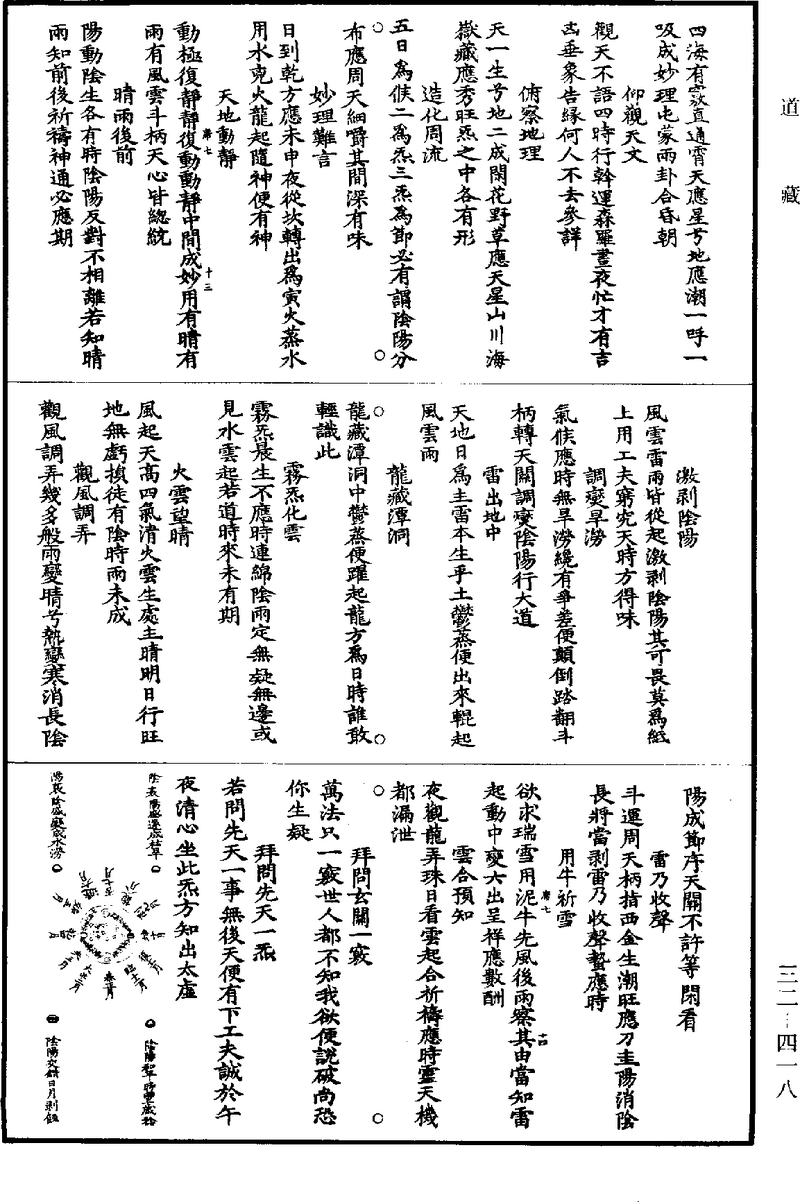 道藏
四海有竅直通霄天應星兮地應潮一呼一
吸成妙理屯蒙兩卦合昏朝
仰觀天文
觀天不語四時行斡運森羅晝夜忙才有吉
凶垂象告緣何人不去參詳
俯察地理
天一生兮地二成閑花野草應天星山川海
嶽藏應秀旺炁之中各有形
造化周流
五日為候二為炁三炁為節必有謂陰陽分
布應周天細嚼其間深有味
妙理難言
日到乾方應未申夜從坎轉出為寅火蒸水
用水剋火龍起隨神便有神
天地動靜
動極復靜靜復動動靜中間成妙用有晴有
雨有風雲斗柄天心皆總統
晴雨後前
陽動陰生各有時陰陽反對不相離若知晴
雨知前後祈禱神通必應期
席七
十三
激剥陰陽
風雲雷雨皆從起激剥陰陽其可畏莫為紙
上用工夫窮究天時方得味
調燮旱澇
氣候應時無旱澇纔有爭差便顛倒踏翻斗
柄轉天關調燮陰陽行大道
雷出地中
天地日為主雷本生乎土鬱蒸便出來輥起
風雲雨
龍藏潭洞
龍藏潭洞中鬱蒸便躍起龍方為日時誰敢
輕識此
霧炁化雲
霧炁晨生不應時連綿陰雨定無疑無邊或
見水雲起若道時來未有期
火雲望晴
風起天高四氣清火雲生處主晴明日行旺
地無虧損徒有陰時雨未成
觀風調弄
觀風調弄幾多般雨變晴兮熱變寒消長陰
陽成節序天關不許等閑看
雷乃收聲
斗運周天柄指西金生潮旺應刀圭陽消陰
長將當剥雷乃收聲蟄應時
用牛祈雪
欲求瑞雪用泥牛先風後雨察其由當知雷
起動中變六出呈祥應數酬
席七
十四
雲合預知
夜觀龍弄珠日看雲起合祈禱應時靈天機
都漏泄
拜問玄關一竅
萬法只一竅世人都不知我欲便說破尚恐
你生疑
拜問先天一炁
若問先天一事無後天便有下工夫誠於午
夜清心坐此炁方知出太虛
三二—四一八